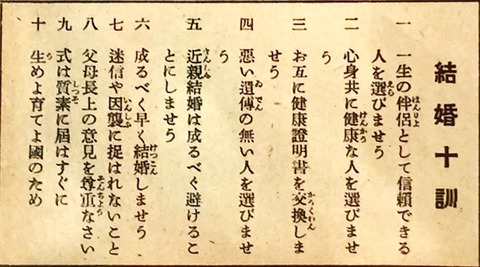 結婚十訓
一 一生の伴侶として信頼できる
人を選びませう
二 心身共に健康な人を選びませ
う
三 お互に健康證明書を交換しま
せう
四 悪い遺傳の無い人を選びませ
う
五 近親結婚は成るべく避けるこ
とにしませう
六 成るべく早く結婚しませう
七 迷信や因襲に捉はれないこと
八 父母長上の意見を尊重なさい
九 式は質素に屆はすぐに
十 生めよ育てよ國のため